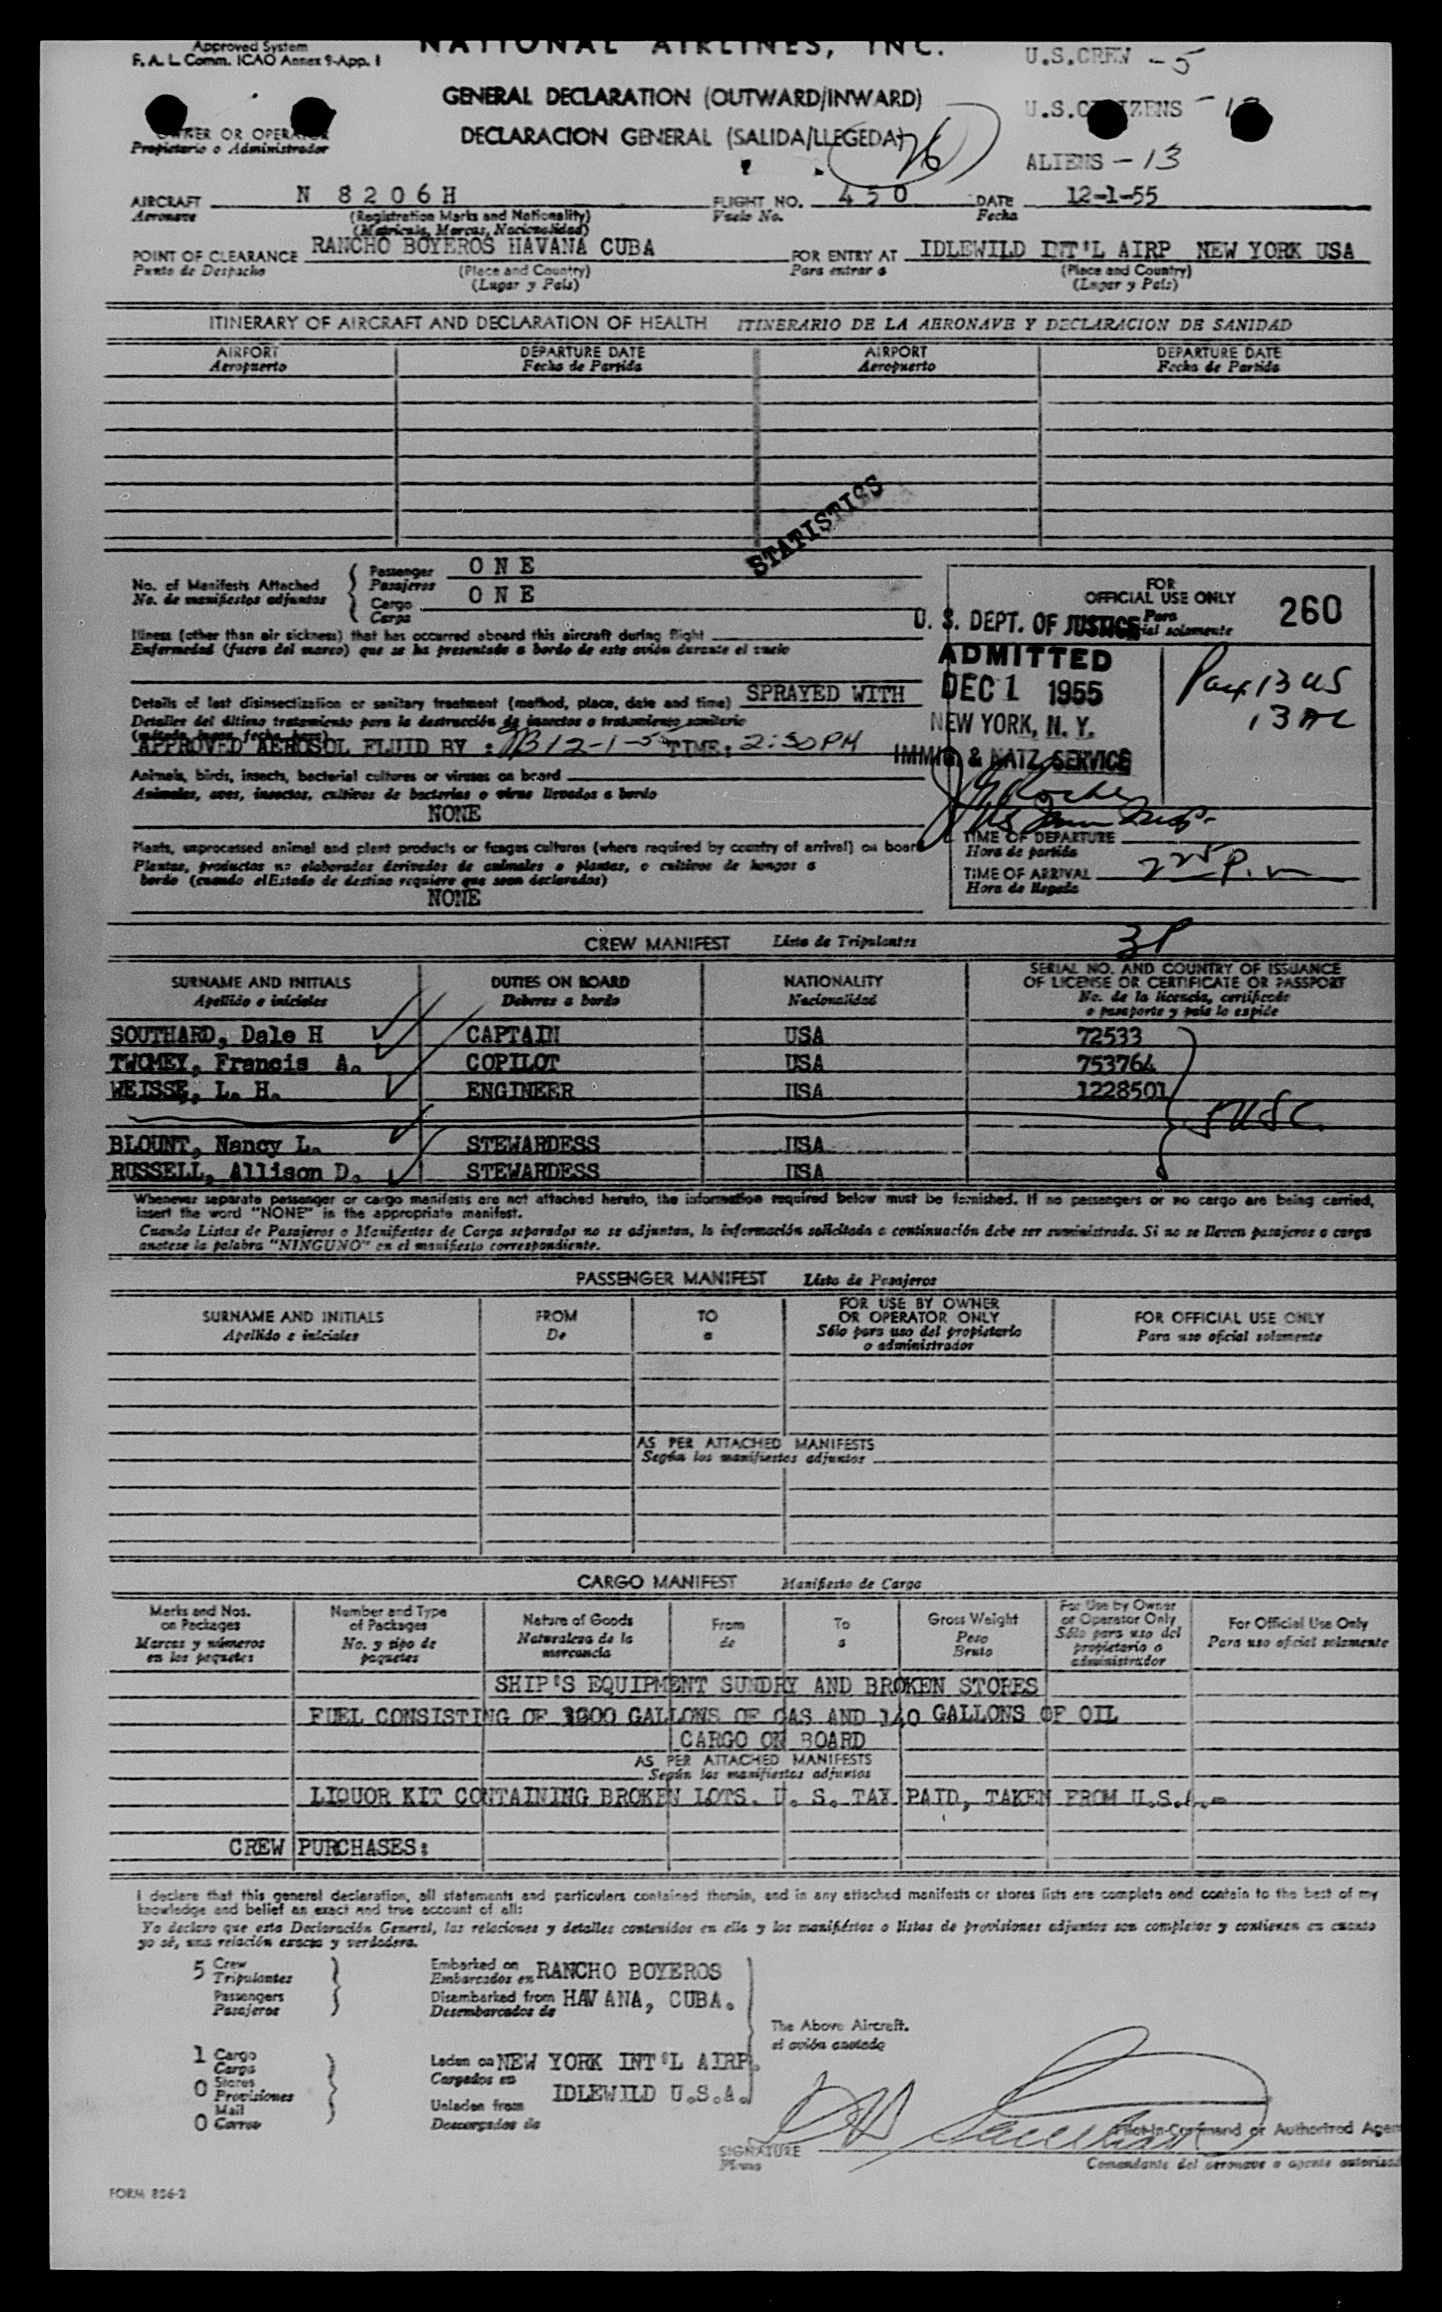 Approved System
F. A. L. Comm. ICAO Annex 9-App. 1
NATIONAL AIRLINES, INC.
U.S.CREW - 5
GENERAL DECLARATION (OUTWARD/INWARD)
DECLARACION GENERAL (SALIDA/LLEGEDA)
26
OWNER OR OPERATOR
Propietario o Administrador
U.S.CITIZENS - 13
ALIENS - 13
AIRCRAFT N 8206H FLIGHT NO. 450 DATE 12-1-55
Aeronave (Registration Marks and Nationality) Vuelo No. Fecha
(Matricula, Marcas, Nacionalidad)
POINT OF CLEARANCE RANCHO BOYEROS HAVANA CUBA FOR ENTRY AT IDLEWILD INT'L AIRP NEW YORK USA
Punto de Despacho (Place and Country) Para entrar a (Place and Country)
(Lugar y País) (Lugar y País)
ITINERARY OF AIRCRAFT AND DECLARATION OF HEALTH ITINERARIO DE LA AERONAVE Y DECLARACION DE SANIDAD
AIRPORT DEPARTURE DATE AIRPORT DEPARTURE DATE
Aeropuerto Fecha de Partida Aeropuerto Fecha de Partida
STATISTICS
No. of Manifests Attached Passenger ONE
No. de manifiestos adjuntos Pasajeros
Cargo ONE
Carga
Illness (other than air sickness) that has occurred aboard this aircraft during flight
Enfermedad (fuera del mareo) que se ha presentado a bordo de este avión durante el vuelo
Details of last disinsectization or sanitary treatment (method, place, date and time) SPRAYED WITH
Detalles del último tratamiento para la destrucción de insectos o tratamiento sanitario
(método, lugar, fecha, hora)
APPROVED AEROSOL FLUID BY : 12-1-55 TIME: 2:30PM
Animals, birds, insects, bacterial cultures or viruses on board
Animales, aves, insectos, cultivos de bacterias o virus llevados a bordo
NONE
Plants, unprocessed animal and plant products or fungus cultures (where required by country of arrival) on board
Plantas, productos no elaborados derivados de animales o plantas, o cultivos de hongos a
bordo (cuando el Estado de destino requiere que sean declarados)
NONE
FOR
OFFICIAL USE ONLY 260
Para
U. S. DEPT. OF JUSTICE
ADMITTED
DEC 1 1955
NEW YORK, N. Y.
IMMIG. & NATZ. SERVICE
Pax 13 US
13 AL
TIME OF DEPARTURE
Hora de partida
TIME OF ARRIVAL 225 P.m
Hora de llegada
CREW MANIFEST Lista de Tripulantes
SURNAME AND INITIALS DUTIES ON BOARD NATIONALITY SERIAL NO. AND COUNTRY OF ISSUANCE
OF LICENSE OR CERTIFICATE OR PASSPORT
Apellido e iniciales Deberes a bordo Nacionalidad No. de la licencia, certificado
o pasaporte y país lo expide
SOUTHARD, Dale H CAPTAIN USA 72533
TWOMEY, Francis A. COPILOT USA 753764
WEISSE, L. H. ENGINEER USA 1228501
5 USC.
BLOUNT, Nancy L. STEWARDESS USA
RUSSELL, Allison D. STEWARDESS USA
Whenever separate passenger or cargo manifests are not attached hereto, the information required below must be furnished. If no passengers or no cargo are being carried,
insert the word "NONE" in the appropriate manifest.
Cuando Listas de Pasajeros o Manifiestos de Carga separados no se adjuntan, la información solicitada a continuación debe ser suministrada. Si no se lleven pasajeros o carga
anotese la palabra "NINGUNO" en el manifiesto correspondiente.
PASSENGER MANIFEST Lista de Pasajeros
SURNAME AND INITIALS FROM TO FOR USE BY OWNER
OR OPERATOR ONLY FOR OFFICIAL USE ONLY
Apellido e iniciales De a Sólo para uso del propietario
o administrador Para uso oficial solamente
AS PER ATTACHED MANIFESTS
Según los manifiestos adjuntos
CARGO MANIFEST Manifiesto de Carga
Marks and Nos.
on Packages
Marcas y números
en los paquetes
Number and Type
of Packages
No. y tipo de
paquetes
Nature of Goods
Naturaleza de la
mercancía
From
de
To
a
Gross Weight
Peso
Bruto
For Use by Owner
or Operator Only
Sólo para uso del
propietario o
administrador
For Official Use Only
Para uso oficial solamente
SHIP'S EQUIPMENT SUNDRY AND BROKEN STORES
FUEL CONSISTING OF GALLONS OF GAS AND 140 GALLONS OF OIL
CARGO ON BOARD
AS PER ATTACHED MANIFESTS
Según los manifiestos adjuntos
LIQUOR KIT CONTAINING BROKEN LOTS. U. S. TAX PAID, TAKEN FROM U.S.A.-
CREW PURCHASES:
I declare that this general declaration, all statements and particulars contained therein, and in any attached manifests or stores lists are complete and contain to the best of my
knowledge and belief an exact and true account of all:
Yo declaro que esta Declaración General, las relaciones y detalles contenidos en ella y los manifiéstos o listas de provisiones adjuntos son completos y contienen en cuanto
yo sé, una relación exacta y verdadera.
5 Crew
Tripulantes
Passengers
Pasajeros
Embarked on
Embarcados en RANCHO BOYEROS
Disembarked from HAVANA, CUBA.
Desembarcados de
The Above Aircraft.
el avión anotado
1 Cargo
Carga
0 Stores
Provisiones
Mail
0 Correo
Laden on NEW YORK INT'L AIRP.
Cargados en
IDLEWILD U.S.A.
Unladen from
Descargados de
SIGNATURE
Firma
Pilot-in-Command or Authorized Agent
Comandante del aeronave o agente autorizado
FORM 806-2